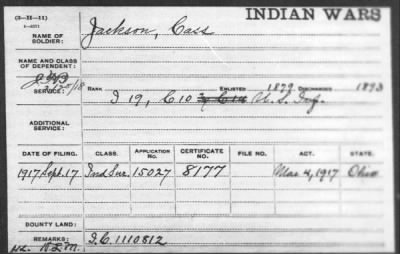 (3—21—11)
6—4071
INDIAN WARS
NAME OF SOLDIER: Jackson, Cass
NAME AND CLASS OF DEPENDENT:
2/25/18
SERVICE: RANK ENLISTED 1879 DISCHARGED 1893
I 19, C 10 U. S. Inf.
ADDITIONAL SERVICE:
DATE OF FILING. CLASS. APPLICATION No. CERTIFICATE No. FILE NO. ACT. STATE.
1917 Sept. 17 Ind Sur. 15027 8177 Mar 4, 1917 Ohio
BOUNTY LAND:
REMARKS: I.C. 1110812